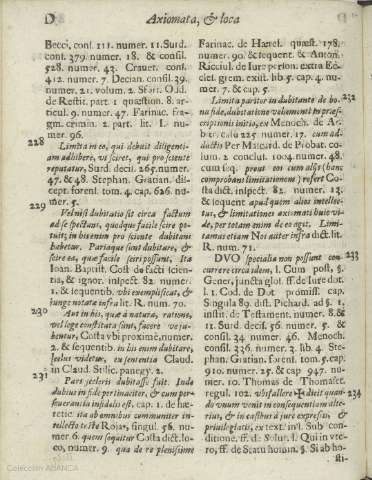 D Axiomata, & loca
Becci, cons. 111. numer. 11. Surd.
cons. 379. numer. 18. & consil.
528. numer. 43. Cravet. cons.
412. numer. 7. Decian. consil. 39.
numer. 21. volum. 2.
de Restit. part. 1 quæstion. 8. ar-
ticul. 9. numer. 47. Farinac. fra-
gm. crimin. 2. part. lit. L. nu-
mer. 96.
228 Limita in eo, qui debuit diligenti-
am adhibere, ut sciret, qui pro sciente
reputatur, Surd. decis. 265. numer.
47. & 48. Stephan. Gratian. dis-
cept. forens. tom. 4. cap. 626. nu-
mer. 5.
229 Vel nisi dubitatio sit circa factum
ad se spectans, quodque facile scire po-
tuit, in his enim pro sciente dubitans
habetur. Pariaque sunt dubitare, &
scire ea, quæ facile sciri possunt, Ita
Ioan. Baptist. Cost. de facti scien-
tia, & ignor. inspect. 82. numer.
1. & sequentib. ubi exemplificat, &
junge notatæ infra lit. R. num. 70.
230 Aut in his, quæ à natura, ratione,
vel lege constituta sunt, facere ve ju-
bentur, Costa ubi proximè, numer.
2. & sequentib. in his enim dubitare,
scelus videtur, ex sententia Claud.
in Claud. Stilic. panegy. 2.
231 Pars sceleris dubitasse fuit. Inde
dubius in fide pertinaciter, & cum per-
severantia infidelis est, cap. 1. de hæ-
retic. ita ab omnibus communiter in-
tellecto teste Rojas, singul. 56. nu-
mer. 6. quem sequitur Costa dict. lo-
co, numer. 9. qua de re plenissime
Farinac. de Hæret. quæst. 178.
numer. 90. & sequent. & Anton.
Ricciul. de Iure person. extra Ec-
cles. grem. exist. lib. 5. cap. 4. nu-
mer. 7. & cap. 5.
Limita pariter in dubitante de bo- 232
na fide, dubitatione vehementi in præs-
criptionis initio, ex Menoch. de Ar-
bitr. casu 225. numer. 17. cum ad-
ductis Per Mascard. de Probat. co-
lum. 2. conclus. 1004. numer. 48.
cum seq. prout eos cum alijs (hanc
comprobans limitationem) refert Co-
sta dict. inspect. 82. numer. 13.
& sequent. apud quem alios intellec-
tus, & limitationes axiomati hui vi-
de, per totam enim de eo agit. Limi-
tamus etiam Nos aliter infra dict. lit.
R. num. 71.
DVO specialia non possunt con- 233
currere circa idem, l. Cum post, §.
Gener, juncta glos. ff. de Iure dot.
l. 1. Cod. de Dot. promiss. cap.
Singula 89. dist. Pichard. ad §. 1.
instit. de Testament. numer. 8. &
11. Surd. decis. 56. numer. 5. &
consil. 34. numer. 46. Menoch.
consil. 336. numer. 3. lib. 4. Ste-
phan. Gratian. forens. tom. 5. cap.
910. numer. 25. & cap. 947. nu-
mer. 10. Thomas de Thomasset.
regul. 102. ubi fallere dicit quan- 234
do unum venit in consequentiam alte-
rius, & in casibus à jure expressis, &
privilegiatis, ex text. in l. Sub con-
ditione, ff. de Solut. l. Qui in ute-
ro, ff. de Statu homin. §. Si ab ho-
sti-
Colección ABANCA